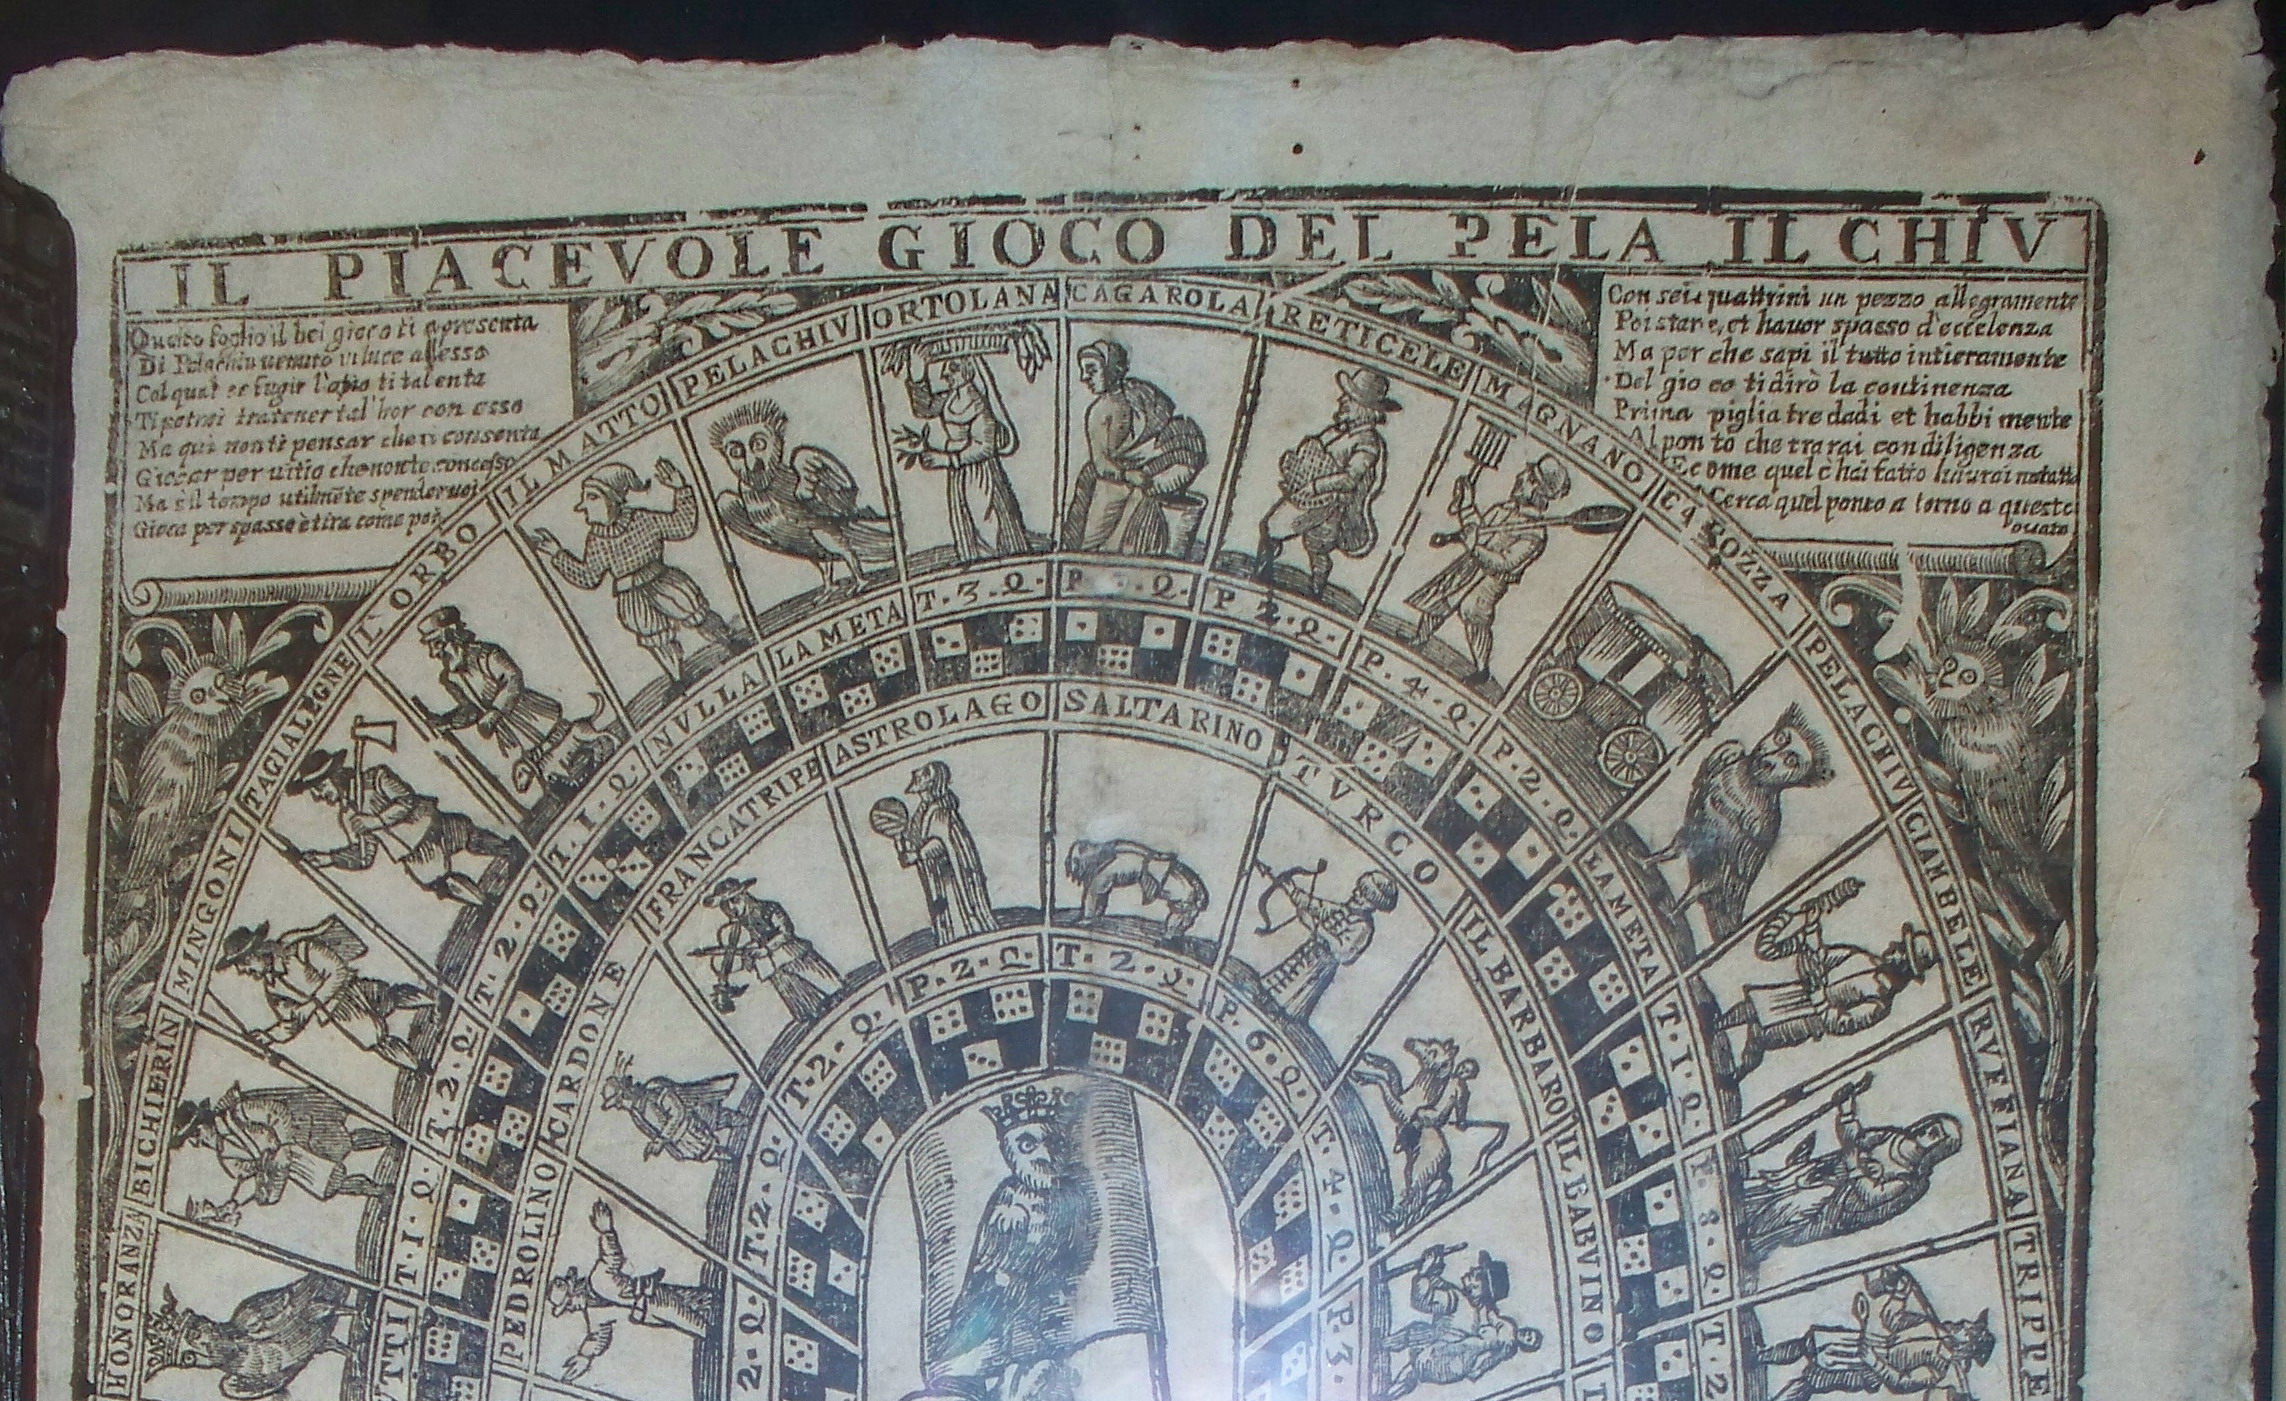 IL PIACEVOLE GIOCO DEL PELA IL CHIV
Questo foglio il bel gioco ti apresenta
Di Pelachiu venuto
Col qual se fugir l'otio ti talenta
Ti potrai tratener tal'hor con esso
Ma qui non ti pensar che ti consenta
Giocar per vitio che non te concesso
Ma s'il tempo utilmēte spender
Gioca per spasso è tira come
Con sei quattrini un pezzo allegramente
Poi stare, et haver spasso d'eccelenza
Ma per che sapi il tutto intieramente
Del gio co ti dirò la continenza
Prima piglia tre dadi et habbi mente
Al pon to che trarai con diligenza
E come quel c'hai fatto havrai notatto
Cerca quel ponto a torno a questo
ouato
HONORANZA
BICHIERIN
MINGONI
TAGIALEGNE
L'ORBO
IL MATTO
PELACHIV
ORTOLANA
CAGAROLA
RETICELE
MAGNANO
CAROZZA
PELACHIV
CIAMBELE
RVFFIANA
TRIPPE
VTTI
T·1·Q·
T·2·Q·
T·2·Q·
T·1·Q·
NVLLA
LA META
T·3·Q·
P Q·
P·2·Q·
P·4·Q·
P·2·Q·
LA META
T·1·Q·
8·Q·
T·2
PEDROLINO
CARDONE
FRANCATRIPE
ASTROLAGO
SALTARINO
TVRCO
IL BARBARO
IL BABVINO
2·Q·
T·2·Q·
T·2·Q·
P·2·Q·
T·2·Q·
P·6·Q·
T·4·Q·
P·3·